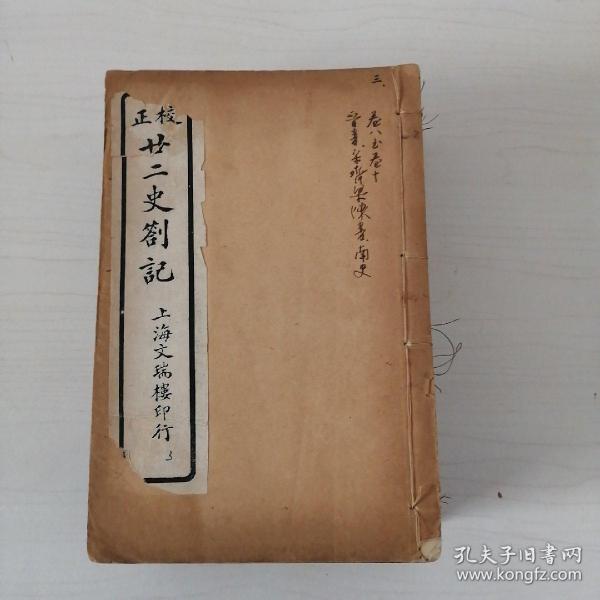 三、
卷八至卷十
晋書、宋齊梁陳書、南史
校正
廿二史劄記
上海文瑞樓印行
3
孔夫子旧書网
www.kongfz.com